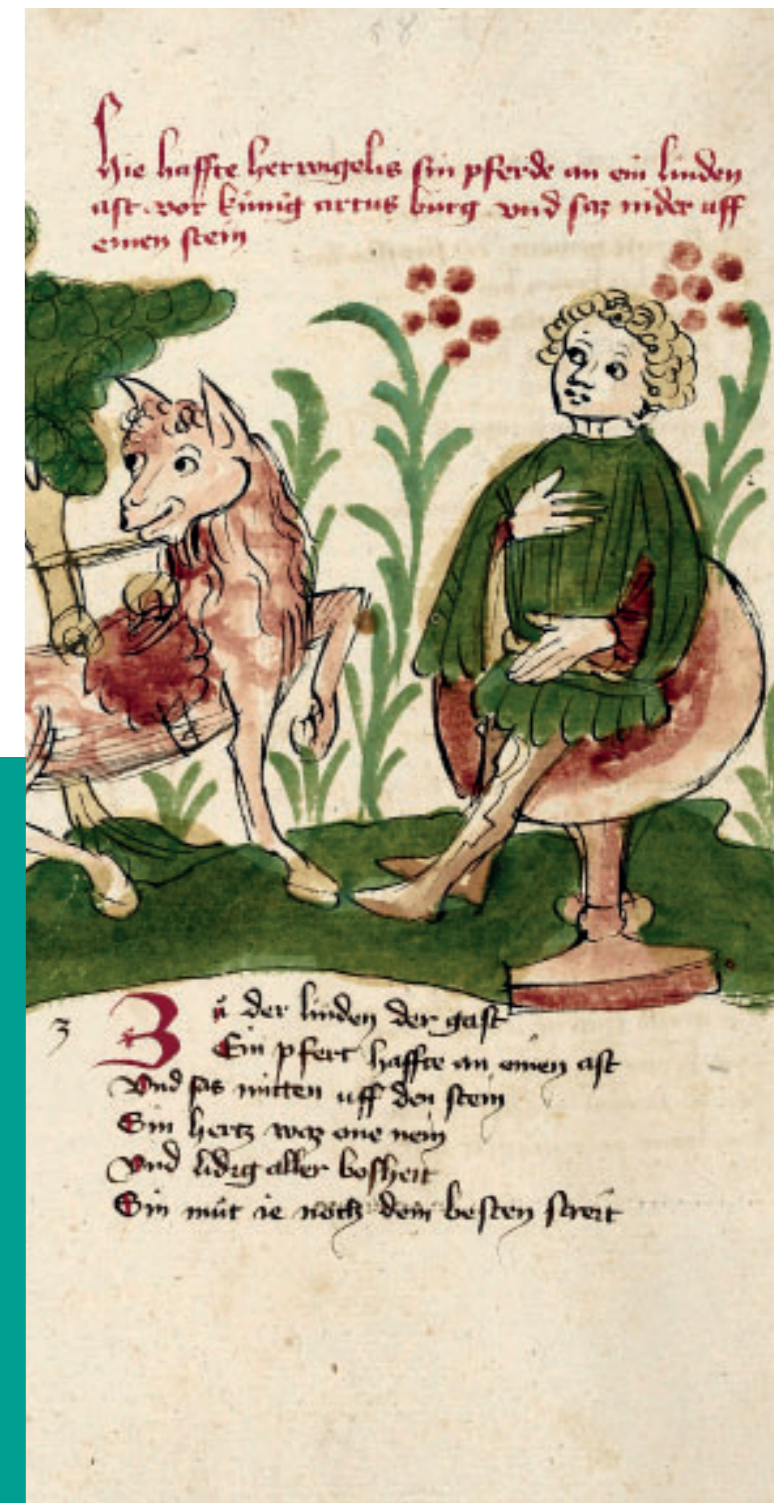 58
Hie haffte her wigelis sin pferde an ein linden
ast vor künig artus burg vnd saz nider uff
einen stein
Zů der linden der gast
Sin pfert haffte an einen ast
Vnd sas mitten uff den stein
Sin hertz waz one nein
Vnd lidig aller bosheit
Sin můt ie noch dem besten streit